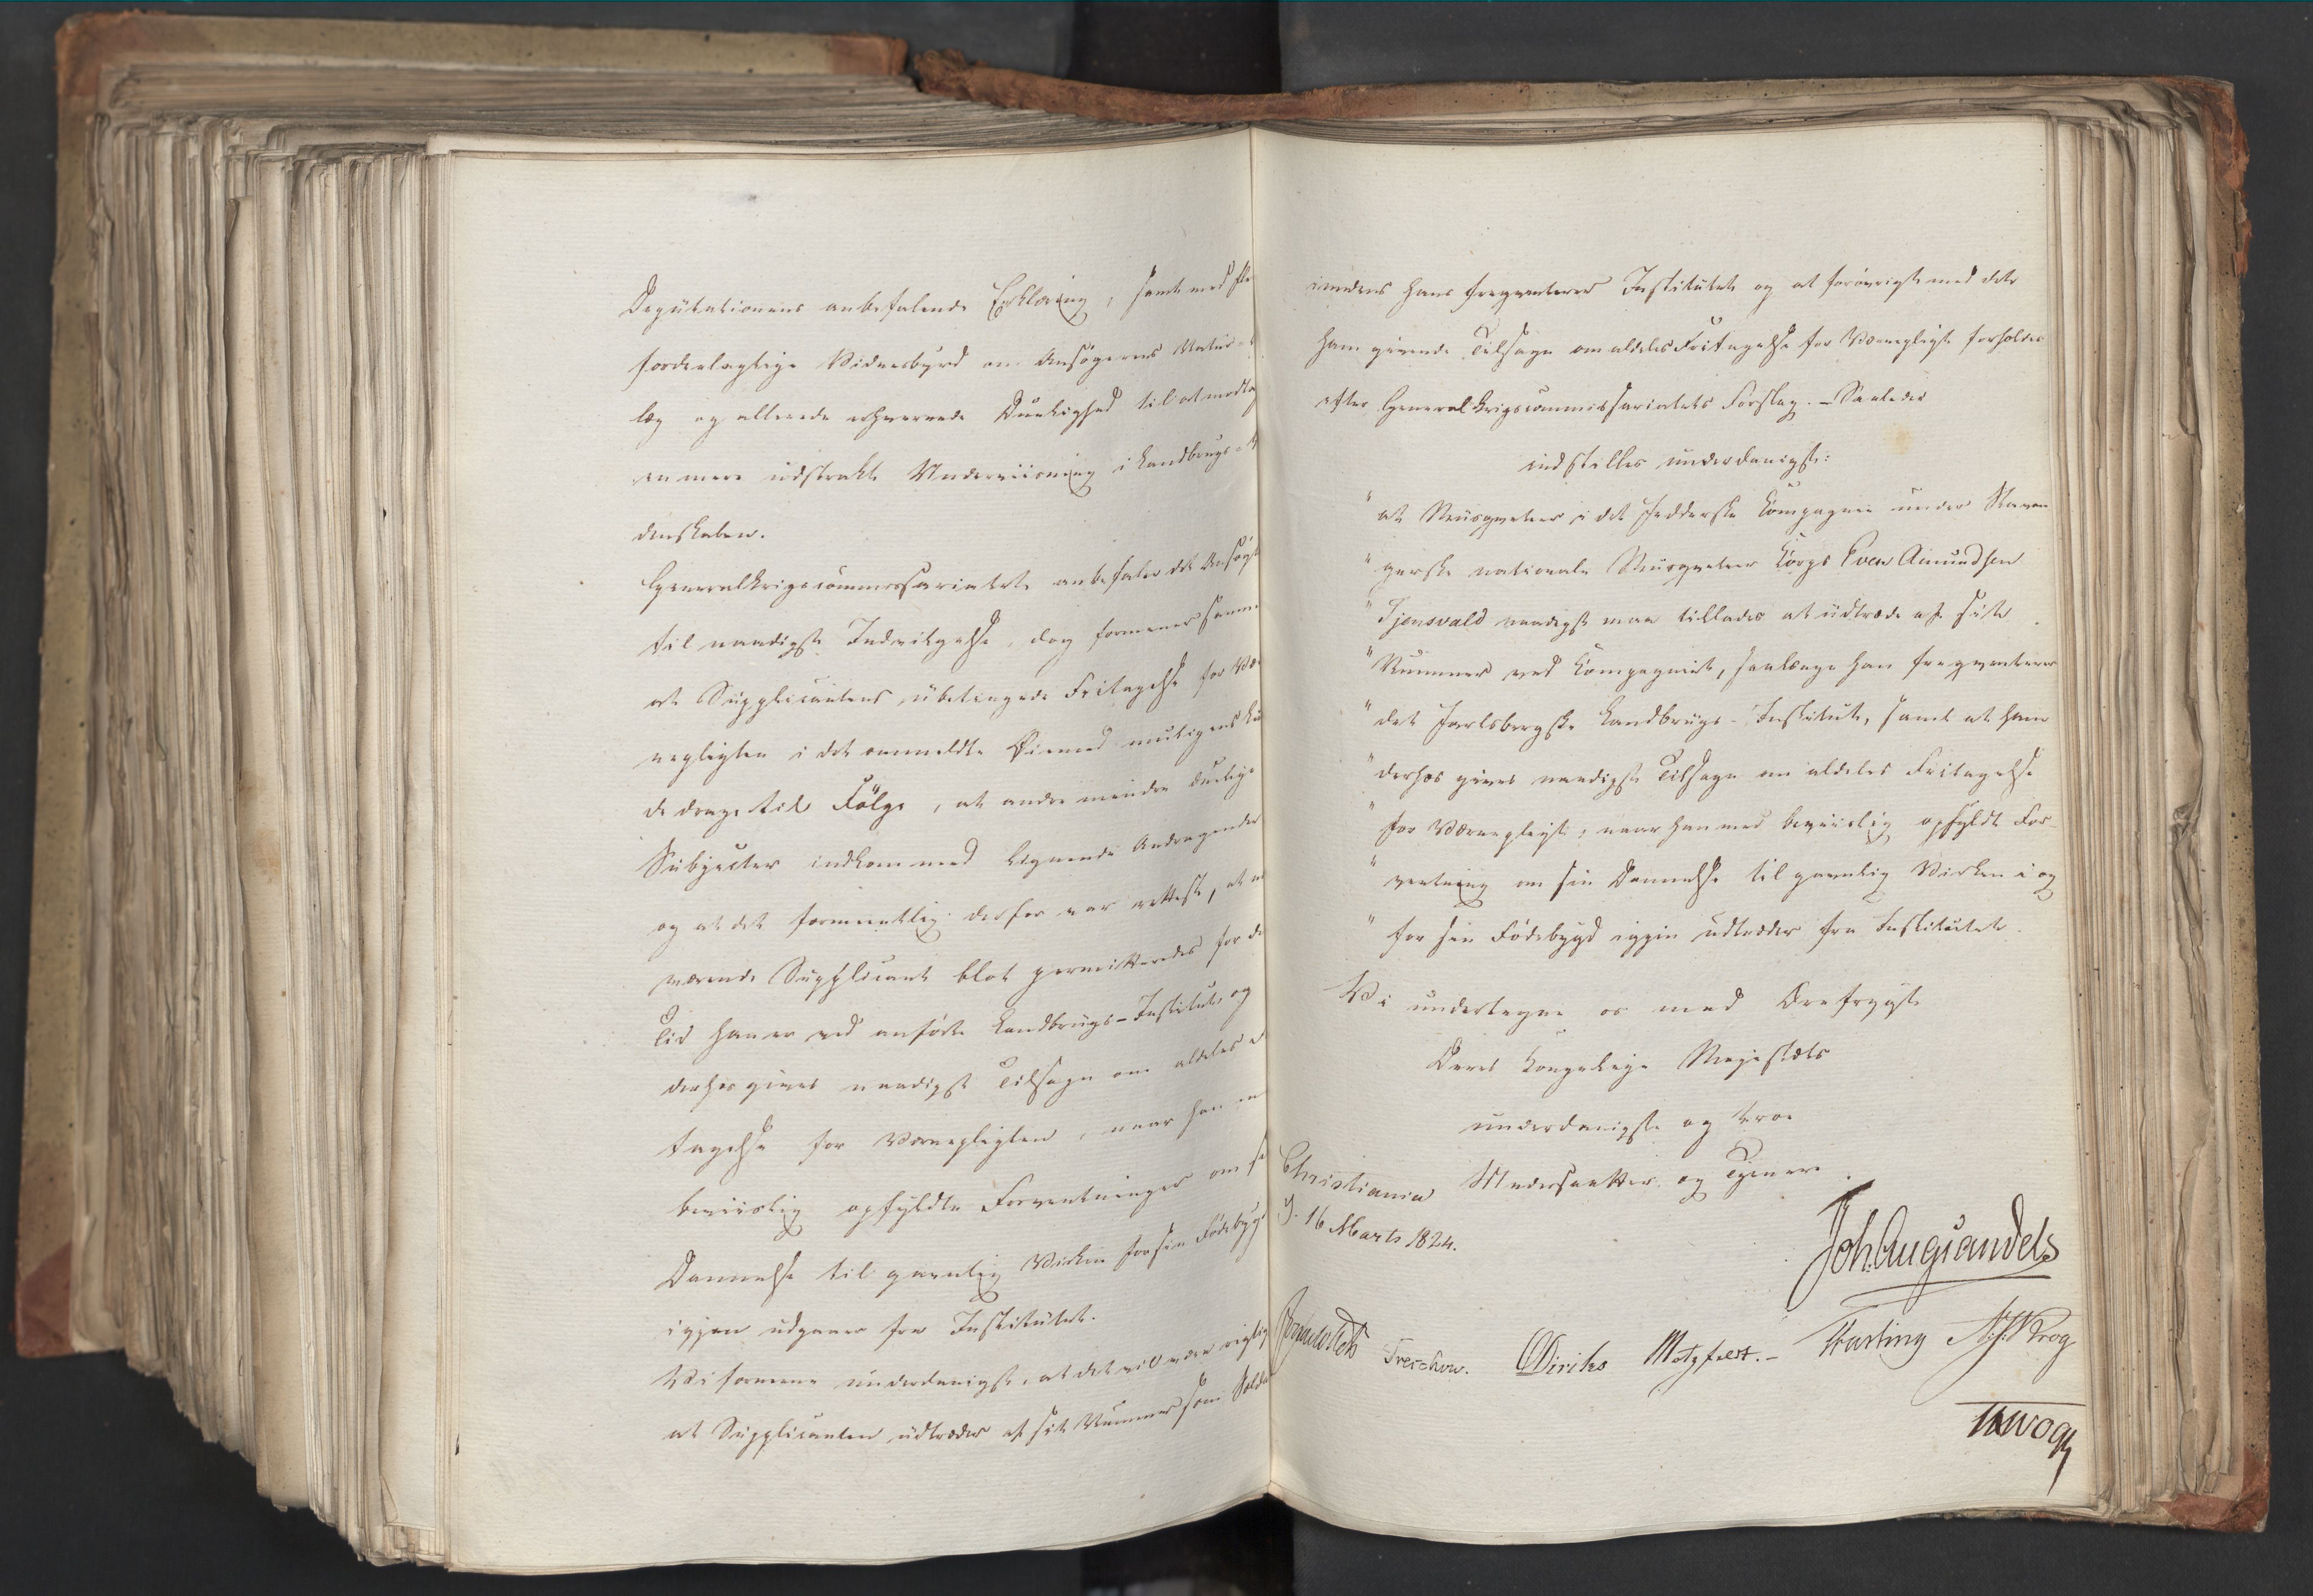 Deputationens anbefalende Erklæring, samt med fle
fordeelagtige Vidnesbyrd om Ansøgerens Natur-
læg og allerede erhvervede Duelighed til at modta
en mere udstrakt Underviisning i Landbrugs-
denskaben.
Generalkrigscommissariatet anbefaler det Ansøgt
til naadigst Indvilgelse, dog formener samme
at Supplicantens ubetingede Fritagelse for Vær
nepligten i det anmeldte Øiemed muligens kun
de drage til Følge, at andre mindre duelige
Subjecter indkom med lignende Andragender
og at det formeentlig derfor var rettest, at n
værende Supplicant blot permitteredes for de
Tid han er ved anførte Landbrugs-Institut og
derhos gives naadigst Tilsagn om aldeles
tagelse for Værnepligten, naar han
beviislig opfyldte Forventninger om si
Dannelse til gavnlig Virken for sin Fødebygd
igjen udgaaer fra Institutet.
Vi formene underdanigst, at det vil være rigtig
at Supplicanten udtræder af sit Nummer som Solda
imedens han frequenterer Institutet og at forøvrigt med det
ham givende Tilsagn om aldeles Fritagelse for Værnepligt forholdes
efter Generalkrigscommissariatets Forslag. - Saaledes
indstilles underdanigst:
" at Musqueteer i det Jedderske Compagnie under Stavan
" gerske nationale Musqueteer Corps Even Amundsen
" Tjensvald naadigst maa tillades at udtræde af sit
" Nummer ved Compagniet, saalænge han frequenterer
" det Jarlsbergske Landbrugs-Institut, samt at ham
" derhos gives naadigst Tilsagn om aldeles Fritagelse
" for Værnepligt, naar han med beviislig opfyldt For-
" ventning om sin Dannelse til gavnlig Virken i og
" for sin Fødebygd igjen udtræder fra Institutet.
Vi undertegne os med Ærefrygt
Deres Kongelige Majestæts
underdanigste og troe
Christiania Undersaatter og Tjenere
d. 16 Marts 1824.
Joh. Aug. Sandels
Sommerhielm Treschow. Diriks Motzfeldt. - Fasting Krog